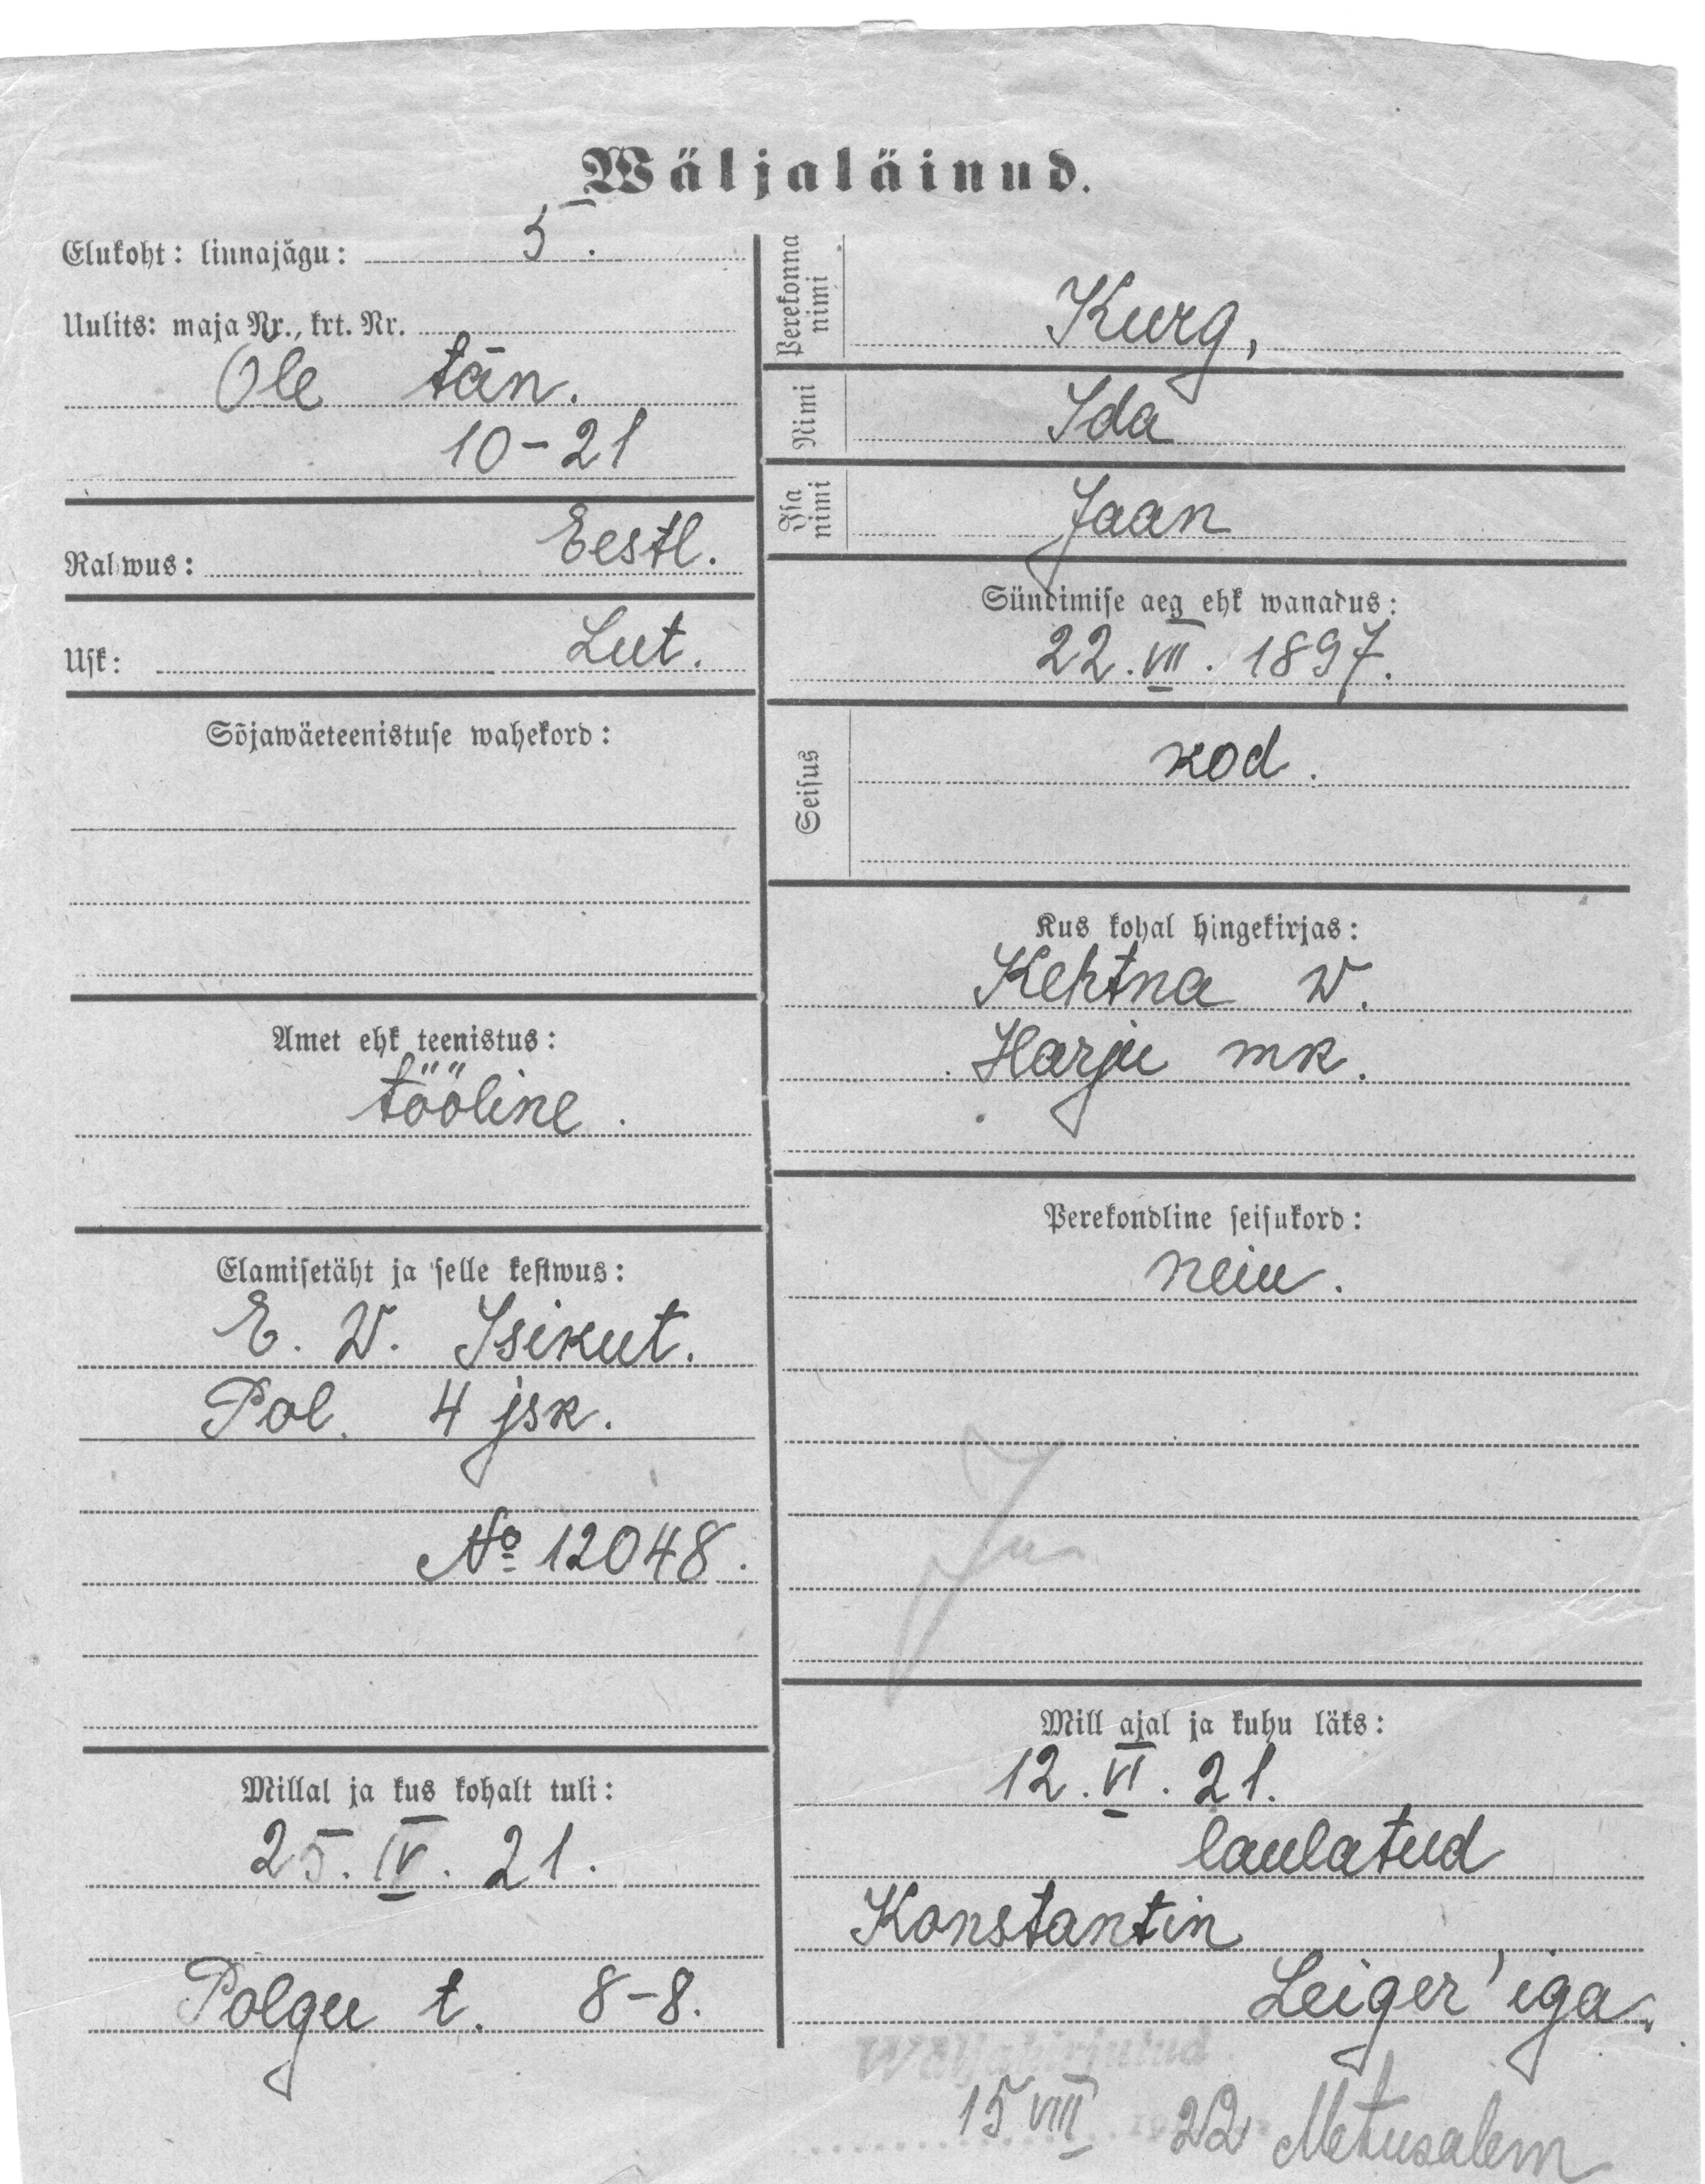 Wäljaläinud.
Elukoht: linnajägu: 5.
Uulits: maja Nr., krt. Nr.
Ole tän.
10-21
Rahwus: Eestl.
Usk: Lut.
Sõjawäeteenistuse wahekord:
Amet ehk teenistus:
tööline.
Elamisetäht ja selle kestwus:
E. W. Isikut.
Pol. 4 jsk.
№ 12048.
Millal ja kus kohalt tuli:
25. IV. 21.
Polgu t. 8-8.
Perekonna nimi Kurg,
Nimi Ida
Isa nimi Jaan
Sündimise aeg ehk wanadus:
22. VII. 1897.
Seisus kod.
Kus kohal hingekirjas:
Kehtna W.
Harju mk.
Perekondline seisukord:
neiu.
Mill ajal ja kuhu läks:
12. VI. 21.
laulatud
Konstantin
Leiger'iga.
Wäljakirjutud
15 VIII 22 Metusalem